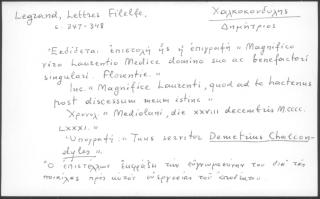 Legrand, Lettres Filelfe.
Χαλκοκονδύλης
σ. 347-348
Δημήτριος
"Ἐκδίδεται ἐπιστολή ἧς ἡ ἐπιγραφή "Magnifico
viro Laurentio Medice domino suo ac benefactori
singulari. Florentie."
Inc. "Magnifice Laurenti, quod ad te hactenus
post discessum meum istinc"
Χρονολ. "Mediolani, die XXVIII decembris MCCCC.
LXXXI."
Ὑπογραφή: "Tuus servitor Demetrius Chalcon-
dyles".
Ὁ ἐπιστέλλων ἐκφράζει τὴν εὐγνωμοσύνην του διὰ τὰς
ποικίλας πρὸς αὐτὸν εὐεργεσίας τοῦ